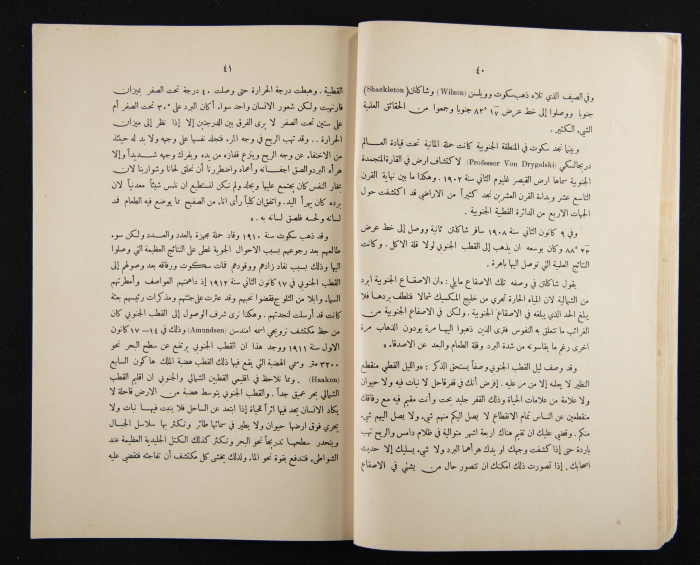 ٤٠
وفي الصيف الذي تلاه ذهب سكوت وويلسن (Wilson) وشاكلتن (Shaekleton)
جنوبا ووصلوا إلى خط عرض ١٧ ٨٢° جنوبا وجمعوا من الحقائق العلمية
الشيء الكثير.
وبينما نجد سكوت في المنطقة الجنوبية كانت حملة المانية تحت قيادة العالم
دريجالسكي (Professor Von Drygalski) لاكتشاف ارض في القارة المتجمدة
الجنوبية سماها ارض القيصر غليوم الثاني سنة ١٩٠٢. وهكذا ما بين نهاية القرن
التاسع عشر وبداءة القرن العشرين نجد كثيراً من الاراضي قد اكتشفت حول
الجهات الاربع من الدائرة القطبية الجنوبية.
وفي ٩ كانون الثاني سنة ١٩٠٨ سافر شاكلتن ثانية ووصل إلى خط عرض
٨٨° وكان بوسعه ان يذهب إلى القطب الجنوبي لولا قلة الاكل. وكانت
النتائج العلمية التي توصل اليها باهرة.
يقول شاكلتن في وصفه تلك الاصقاع مايلي: «ان الاصقاع الجنوبية ابرد
من الشمالية لان المياه الحارة تجري من خليج المكسيك شمالا فتلطف بردها فلا
يبلغ الحد الذي يبلغه في الاصقاع الجنوبية. ولكن في الاصقاع الجنوبية من
الغرائب ما تتعلق به النفوس فترى الذين ذهبوا اليها مرة يودون الذهاب مرة
اخرى رغم ما يقاسونه من شدة البرد وقلة الطعام والبعد عن الاصدقاء»
وقد وصف ليل القطب الجنوبي وصفاً يستحق الذكر: «والليل القطبي منقطع
النظير لا يعلمه إلا من مر عليه. إفرض أنك في قفر قاحل لا نبات فيه ولا حيوان
ولا علامة من علامات الحياة وذلك القفر جليد بحت وأنت مقيم فيه مع رفاقك
منقطعين عن الناس تمام الانقطاع لا يصل اليكم منهم شيء. ولا يصل اليهم شيء
منكم. وقضي عليك ان تقيم هناك اربعة اشهر متوالية في ظلام دامس والريح تهب
باردة حتى إذا كشفت وجهك او يدك هرأهما البرد ولا شيء يسليك إلا حديث
اصحابك. إذا تصورت ذلك امكنك ان تتصور حال من يشتي في الاصقاع
٤١
القطبية. وهبطت درجة الحرارة حتى وصلت ٤٠ درجة تحت الصفر بميزان
فارنهيت ولكن شعور الانسان واحد سواء أكان البرد على ٣٠° تحت الصفر أم
على ستين تحت الصفر لا يرى الفرق بين الدرجتين إلا إذا نظر إلى ميزان
الحرارة.. وقد تهب الريح في وجه المرء. فتجلد نفسها على وجهه ولا بد له حينئذ
من الاختفاء عن وجه الريح وينزع قفازه من يده ويفرك وجهه شديداً وإلا
هرأه البرد والصق اجفانه وأعماه واضطررنا أن نحلق لحانا وشواربنا لان
بخار النفس كان يجتمع عليها ويجلد ولم نكن نستطيع ان نلمس شيئاً معدنياً لان
برده كان يهرأ اليد. واتفق ان كلباً رأى اناء من الصفيح مما يوضع فيه الطعام فمد
لسانه ولحسه فلصق لسانه به.»
وقد ذهب سكوت سنة ١٩١٠ وقاد حملة مجهزة بالعدد والعدد ولكن سوء
طالعهم بعد رجوعهم بسبب الاحوال الجوية غطى على النتائج العظيمة التي وصلوا
اليها وذلك بسبب نفاد زادهم ووقودهم فمات سكوت ورفاقه بعد وصولهم إلى
القطب الجنوبي في ١٧ كانون الثاني سنة ١٩١٢ إذ داهمتهم العواصف وأمطرتهم
السماء وابلا من الثلوج فقضوا نحبهم وقد عثرت على جثثهم ومذكرات رئيسهم بعثة
كانت قد أرسلت لنجدتهم. وهكذا نرى شرف الوصول إلى القطب الجنوبي كان
من حظ مكتشف نرويجي اسمه امندسن (Amundsen) وذلك في ١٤–١٧ كانون
الاول سنة ١٩١١ ووجد هذا ان القطب الجنوبي يرتفع عن سطح البحر نحو
٣٢٠٠ متر وسمى الهضبة التي يقع فيها ذلك القطب هضبة الملك هاكون السابع
(Haakon). ومما نلاحظ في اقليمي القطبين الشمالي والجنوبي ان اقليم القطب
الشمالي بحر عميق جداً. والقطب الجنوبي يتوسط هضبة من الارض قاحلة لا
يكاد الانسان يجد فيها اثراً للحياة إذا ابتعد عن الساحل فلا ينبت فيها نبات ولا
يجري فوق ارضها حيوان ولا يطير في سمائها طائر وتكثر بها سلاسل الجبال
وينحدر سطحها تدريجاً نحو البحر وتكثر كذلك الكتل الجليدية العظيمة عند
الشواطيء فتندفع بقوة نحو الماء. ولذلك يخشى كل مكتشف أن تفاجئه فتقضي عليه